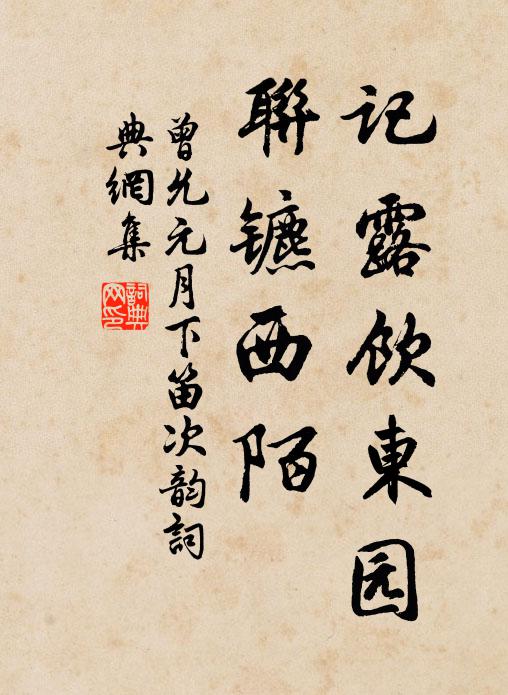 记露饮東园
聯镳西陌
曾允元月下笛次韵詞
典網集
詞典
网印